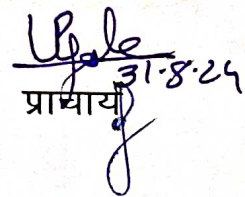 31-8-24
प्राचार्य